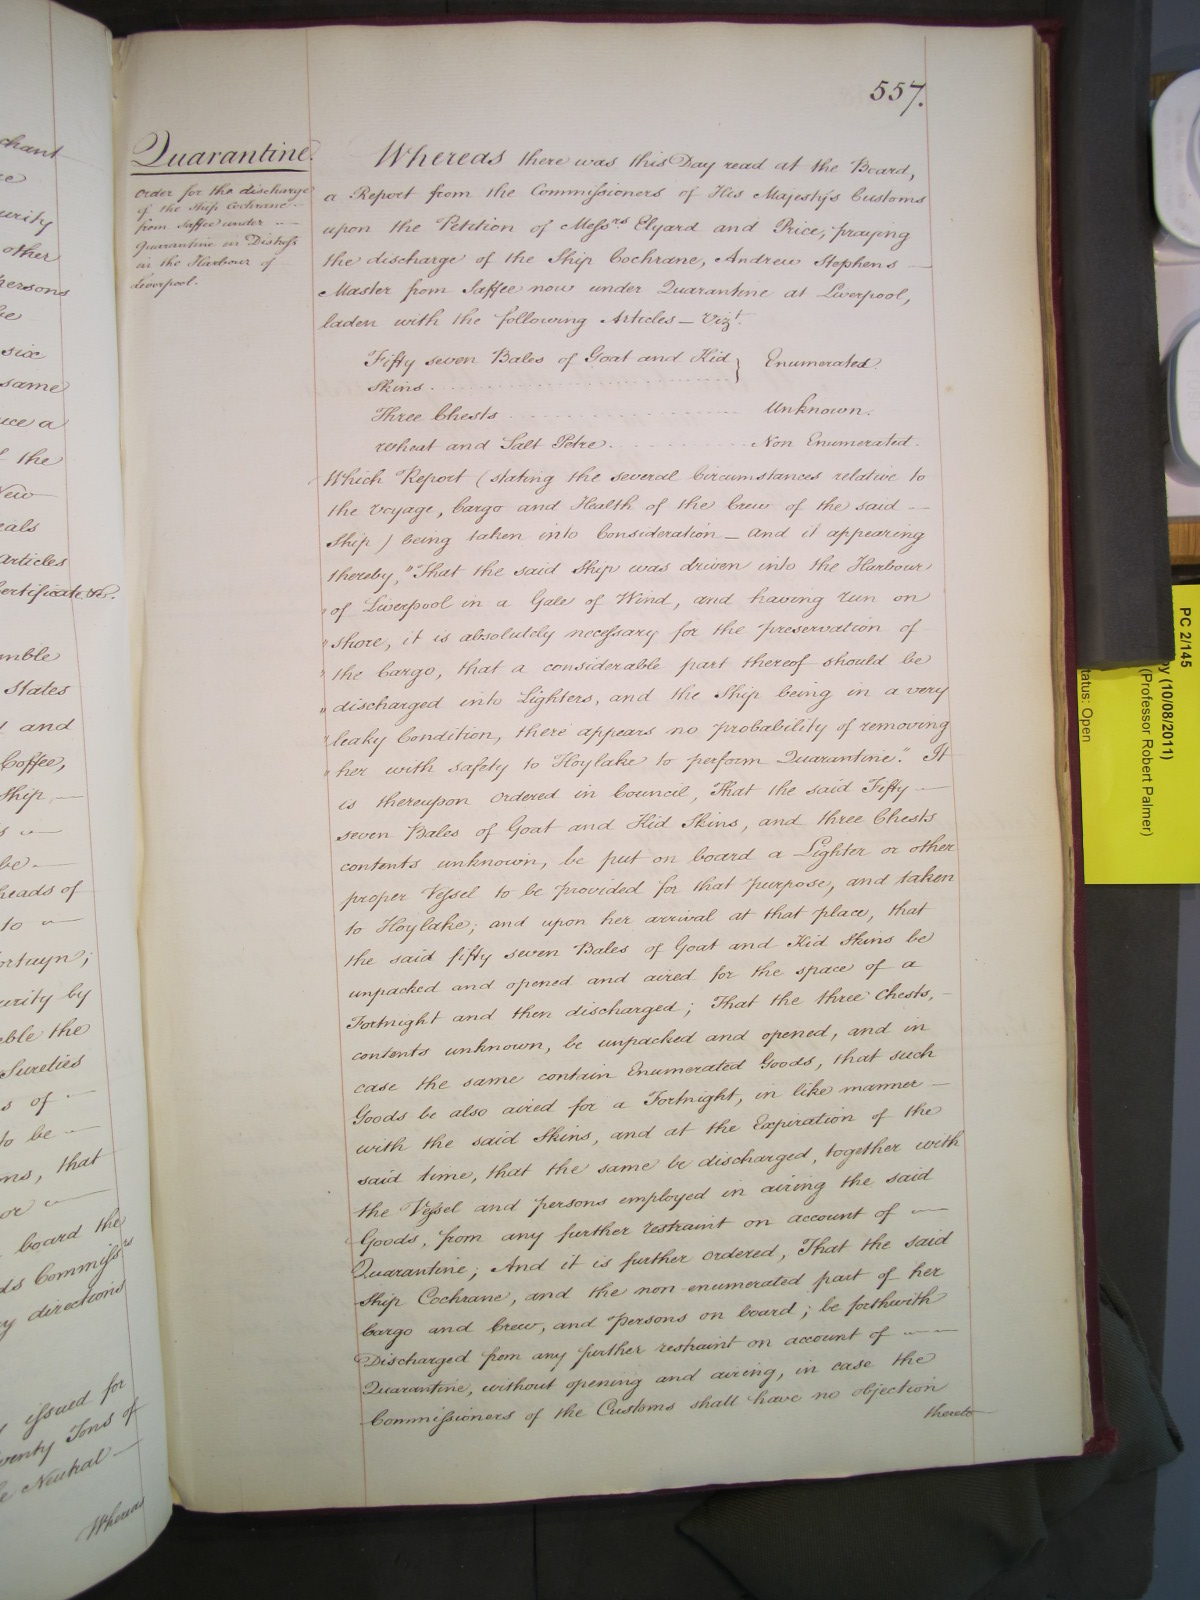 557.
Quarantine.
order for the discharge
of the Ship Cochrane
from Saffee under
Quarantine in Distress
in the Harbour of
Liverpool.
Whereas there was this Day read at the Board,
a Report from the Commissioners of His Majesty's Customs
upon the Petition of Messrs Elyard and Price, praying
the discharge of the Ship Cochrane, Andrew Stephens —
Master from Saffee now under Quarantine at Liverpool,
laden with the following Articles — Vizt.
Fifty seven Bales of Goat and Kid } Enumerated.
Skins.
Three Chests Unknown.
Wheat and Salt Petre. Non Enumerated.
Which Report (stating the several Circumstances relative to
the Voyage, Cargo and Health of the Crew of the said —
Ship) being taken into Consideration — and it appearing
thereby, "That the said Ship was driven into the Harbour
" of Liverpool in a Gale of Wind, and having run on
" shore, it is absolutely necessary for the preservation of
" the Cargo, that a considerable part thereof should be
" discharged into Lighters, and the Ship being in a very
" leaky Condition, there appears no probability of removing
" her with safety to Hoylake to perform Quarantine." It
is thereupon ordered in Council, That the said Fifty —
seven Bales of Goat and Kid Skins, and three Chests
contents unknown, be put on board a Lighter or other
proper Vessel to be provided for that purpose, and taken
to Hoylake; and upon her arrival at that place, that
the said fifty seven Bales of Goat and Kid Skins be
unpacked and opened and aired for the space of a
Fortnight and then discharged; That the three Chests, —
contents unknown, be unpacked and opened, and in
case the same contain Enumerated Goods, that such
Goods be also aired for a Fortnight, in like manner —
with the said Skins, and at the Expiration of the
said time, that the same be discharged, together with
the Vessel and persons employed in airing the said
Goods, from any further restraint on account of —
Quarantine; And it is further ordered, That the said
Ship Cochrane, and the non enumerated part of her
Cargo and Crew, and Persons on board; be forthwith
Discharged from any further restraint on account of —
Quarantine, without opening and airing, in case the
Commissioners of the Customs shall have no objection
thereto
chant
urity
other
ersons
be
six
same
uce a
the
New
eals
articles
ertificate &c.
mble
States
and
Coffee,
Ship —
be —
heads of
to —
ortuyn;
urity by
eble the
Sureties
s of —
to be —
ns, that
or —
board the
ds Commissrs
y directions
issued for
wenty Tons of
e Neutral —
Whereas
PC 2/145
py (10/08/2011)
(Professor Robert Palmer)
tatus: Open